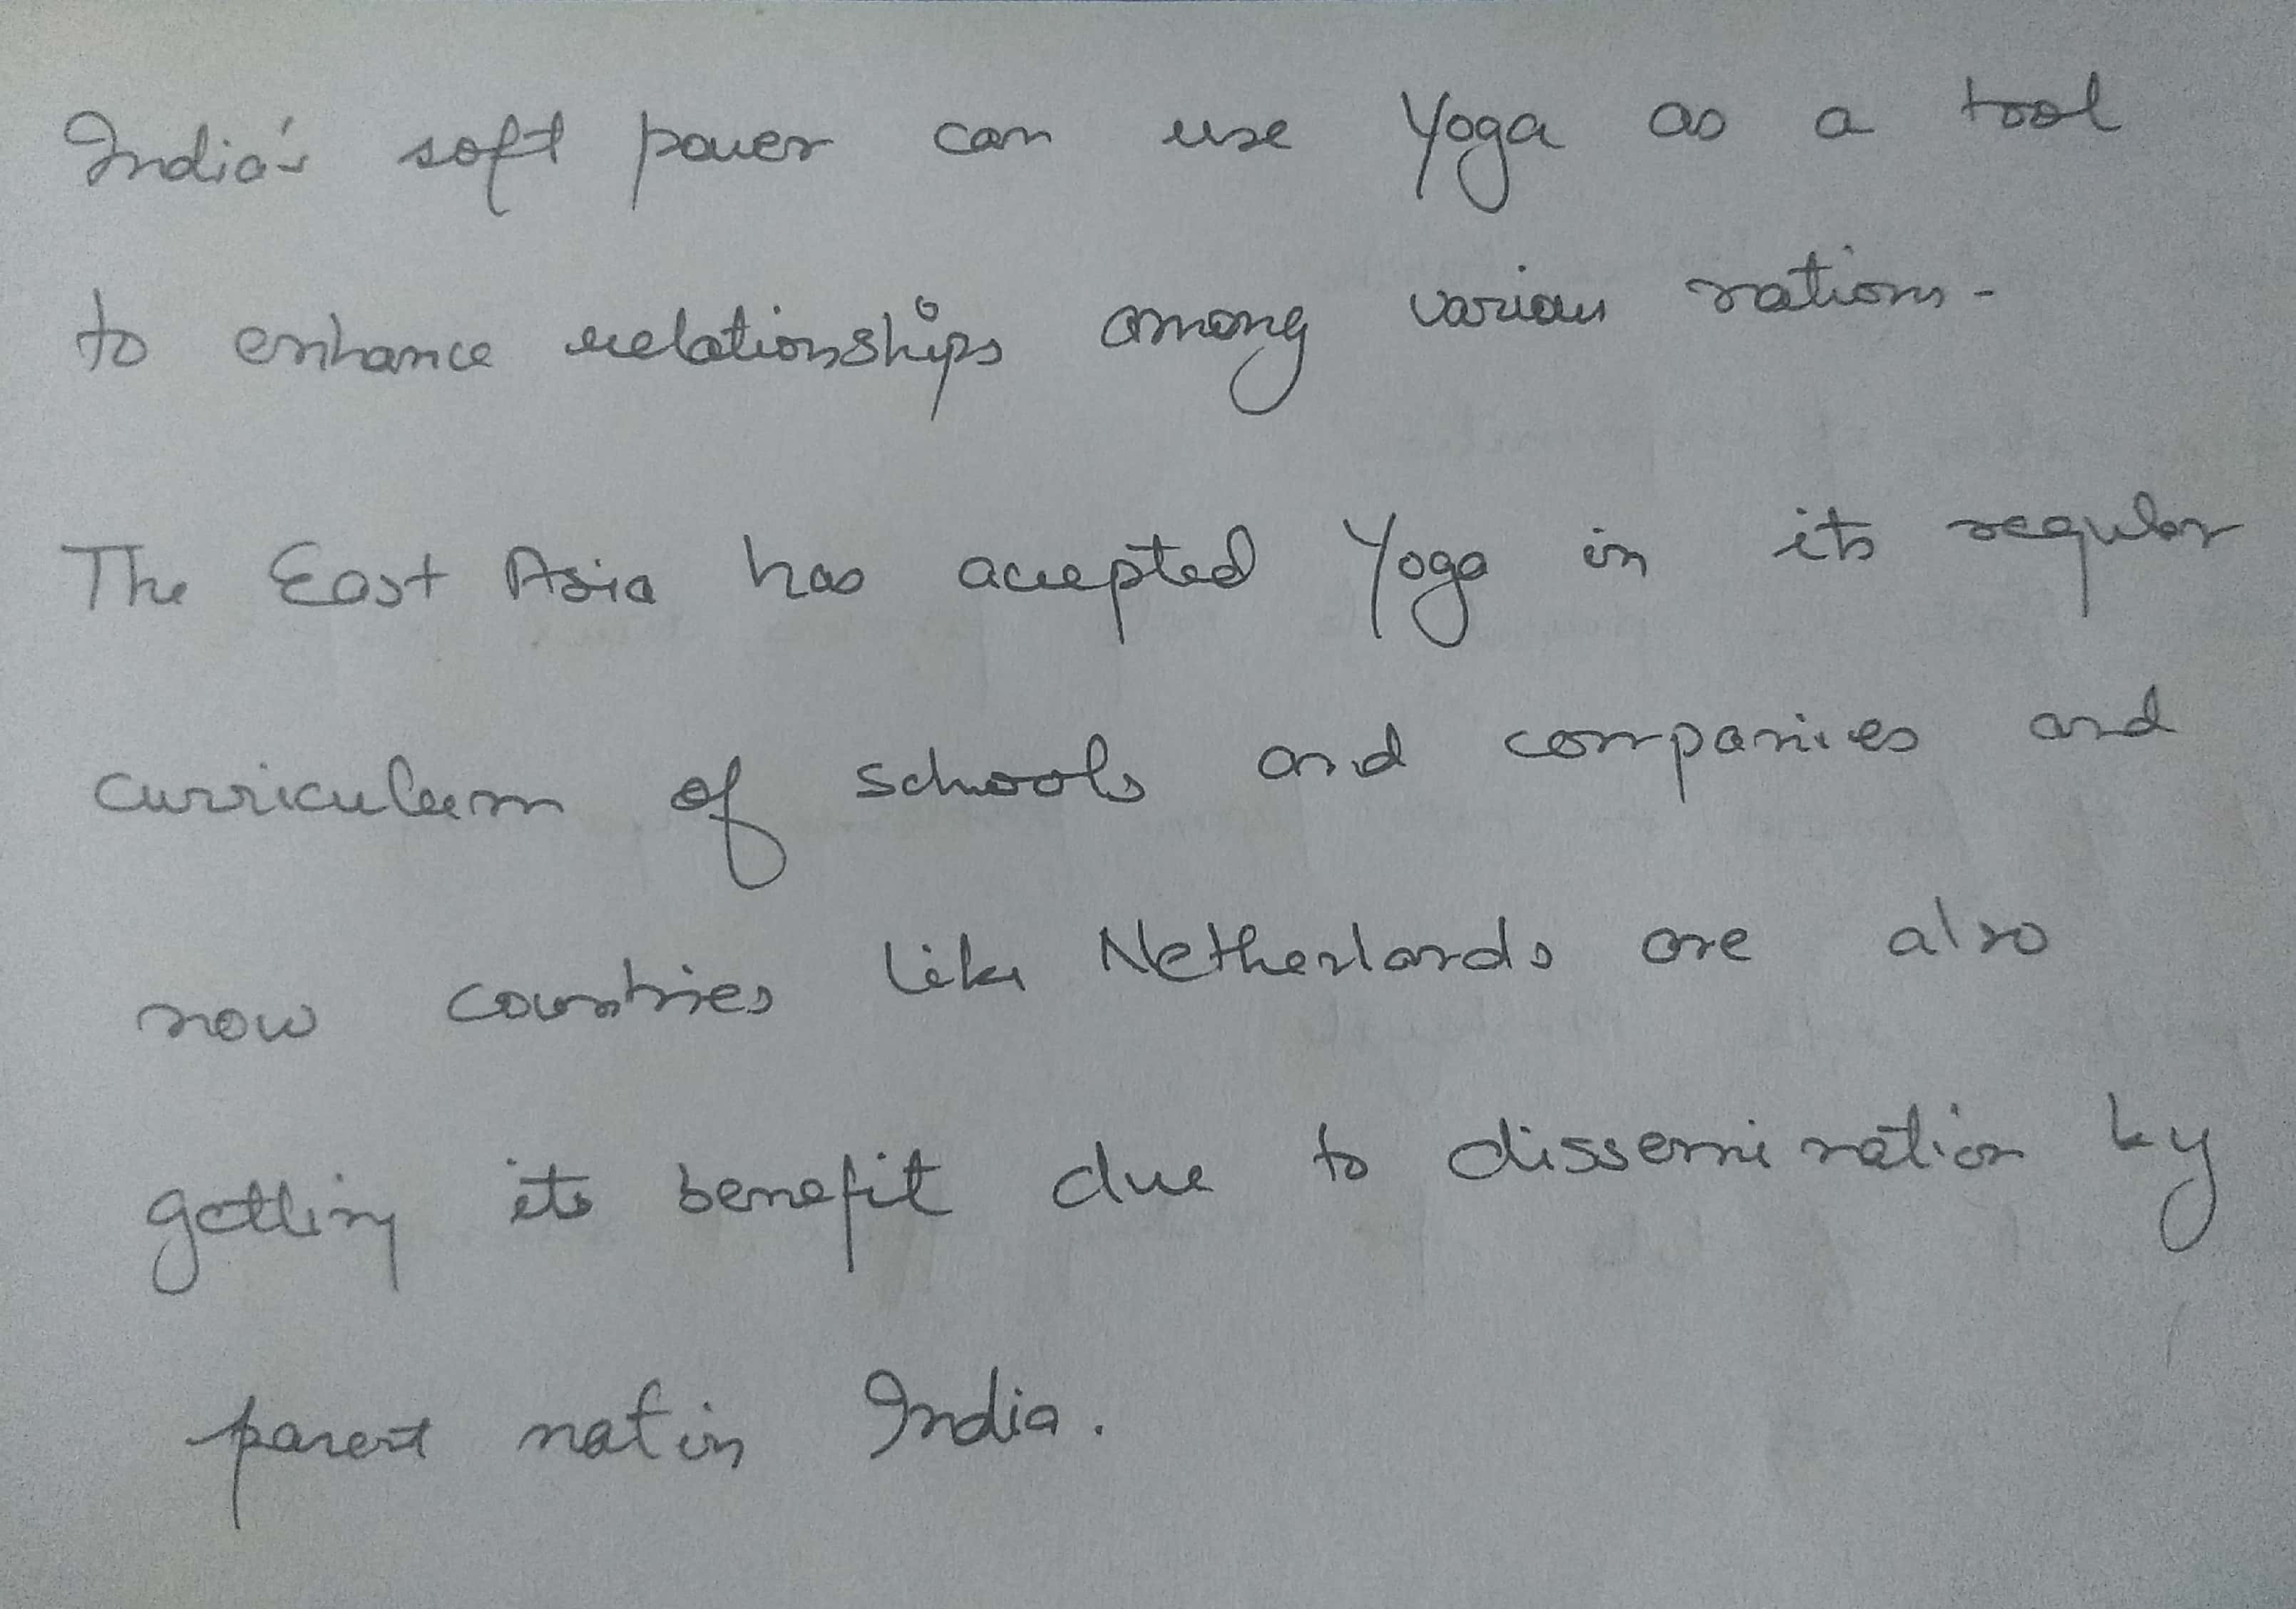 India's soft power can use Yoga as a tool
to enhance relationships among various nations.
The East Asia has accepted Yoga in its regular
curriculum of schools and companies and
now countries like Netherlands are also
getting its benefit due to dissemination by
parent natin India.